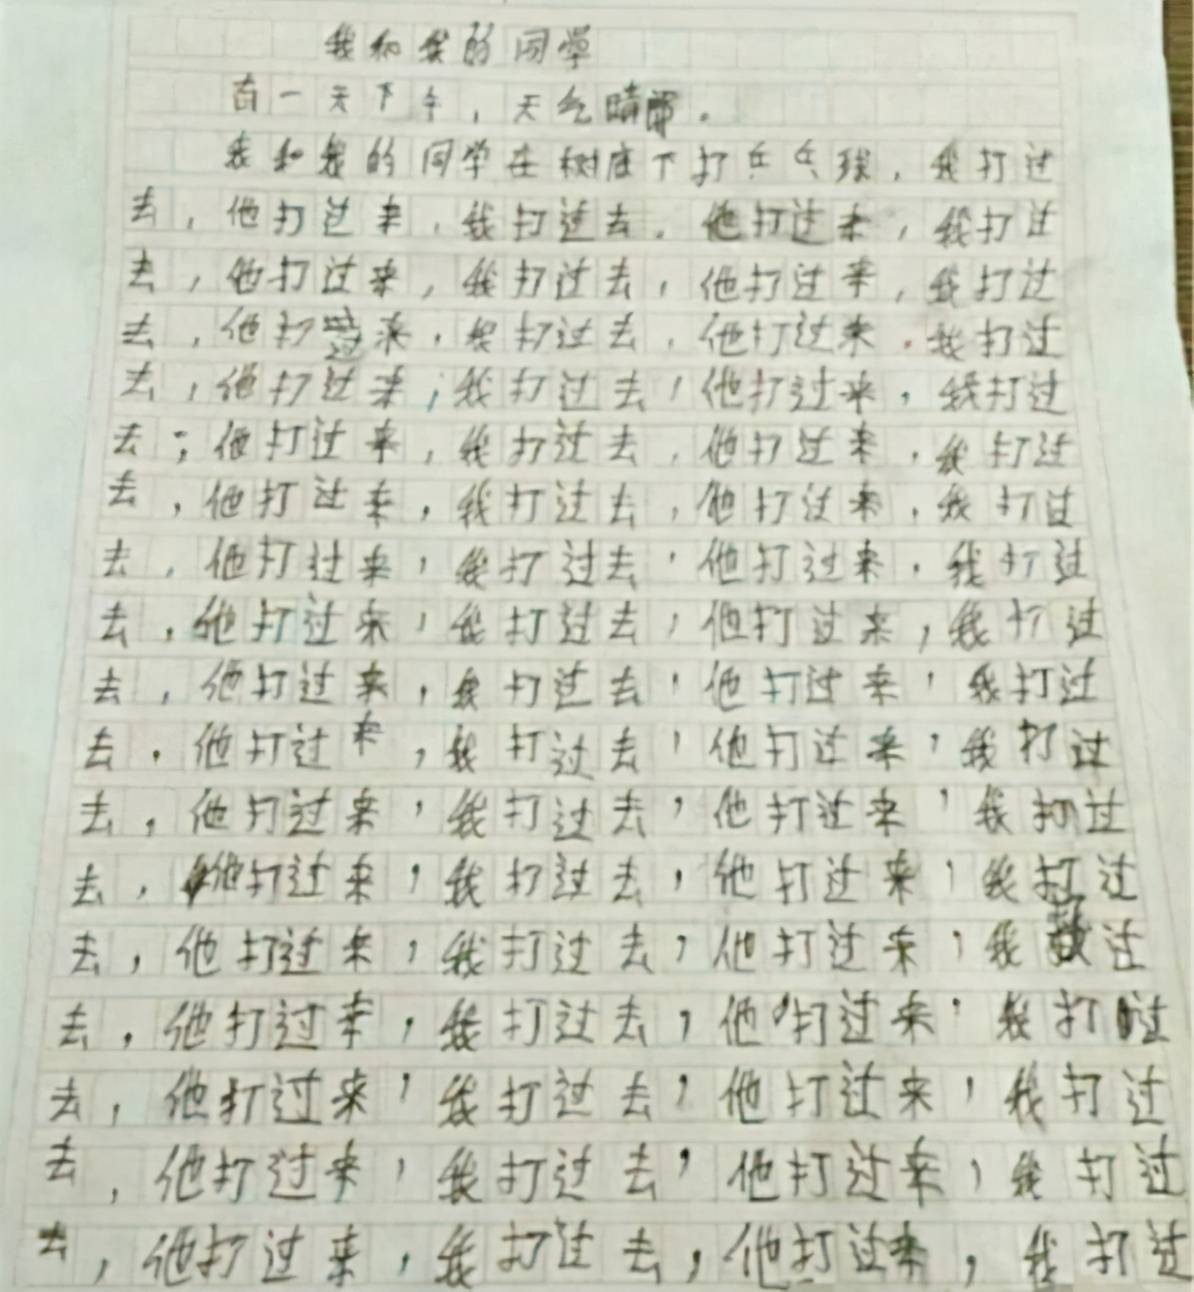 我和我的同学
有一天下午，天气晴。
我和我的同学在树底下打乒乓球，我打过
去，他打过来，我打过去，他打过来，我打过
去，他打过来，我打过去，他打过来，我打过
去，他打过来，我打过去，他打过来，我打过
去，他打过来，我打过去，他打过来，我打过
去，他打过来，我打过去，他打过来，我打过
去，他打过来，我打过去，他打过来，我打过
去，他打过来，我打过去，他打过来，我打过
去，他打过来，我打过去，他打过来，我打过
去，他打过来，我打过去，他打过来，我打过
去，他打过来，我打过去，他打过来，我打过
去，他打过来，我打过去，他打过来，我打过
去，他打过来，我打过去，他打过来，我打过
去，他打过来，我打过去，他打过来，我过
去，他打过来，我打过去，他打过来，我打过
去，他打过来，我打过去，他打过来，我打过
去，他打过来，我打过去，他打过来，我打过
去，他打过来，我打过去，他打过来，我打过